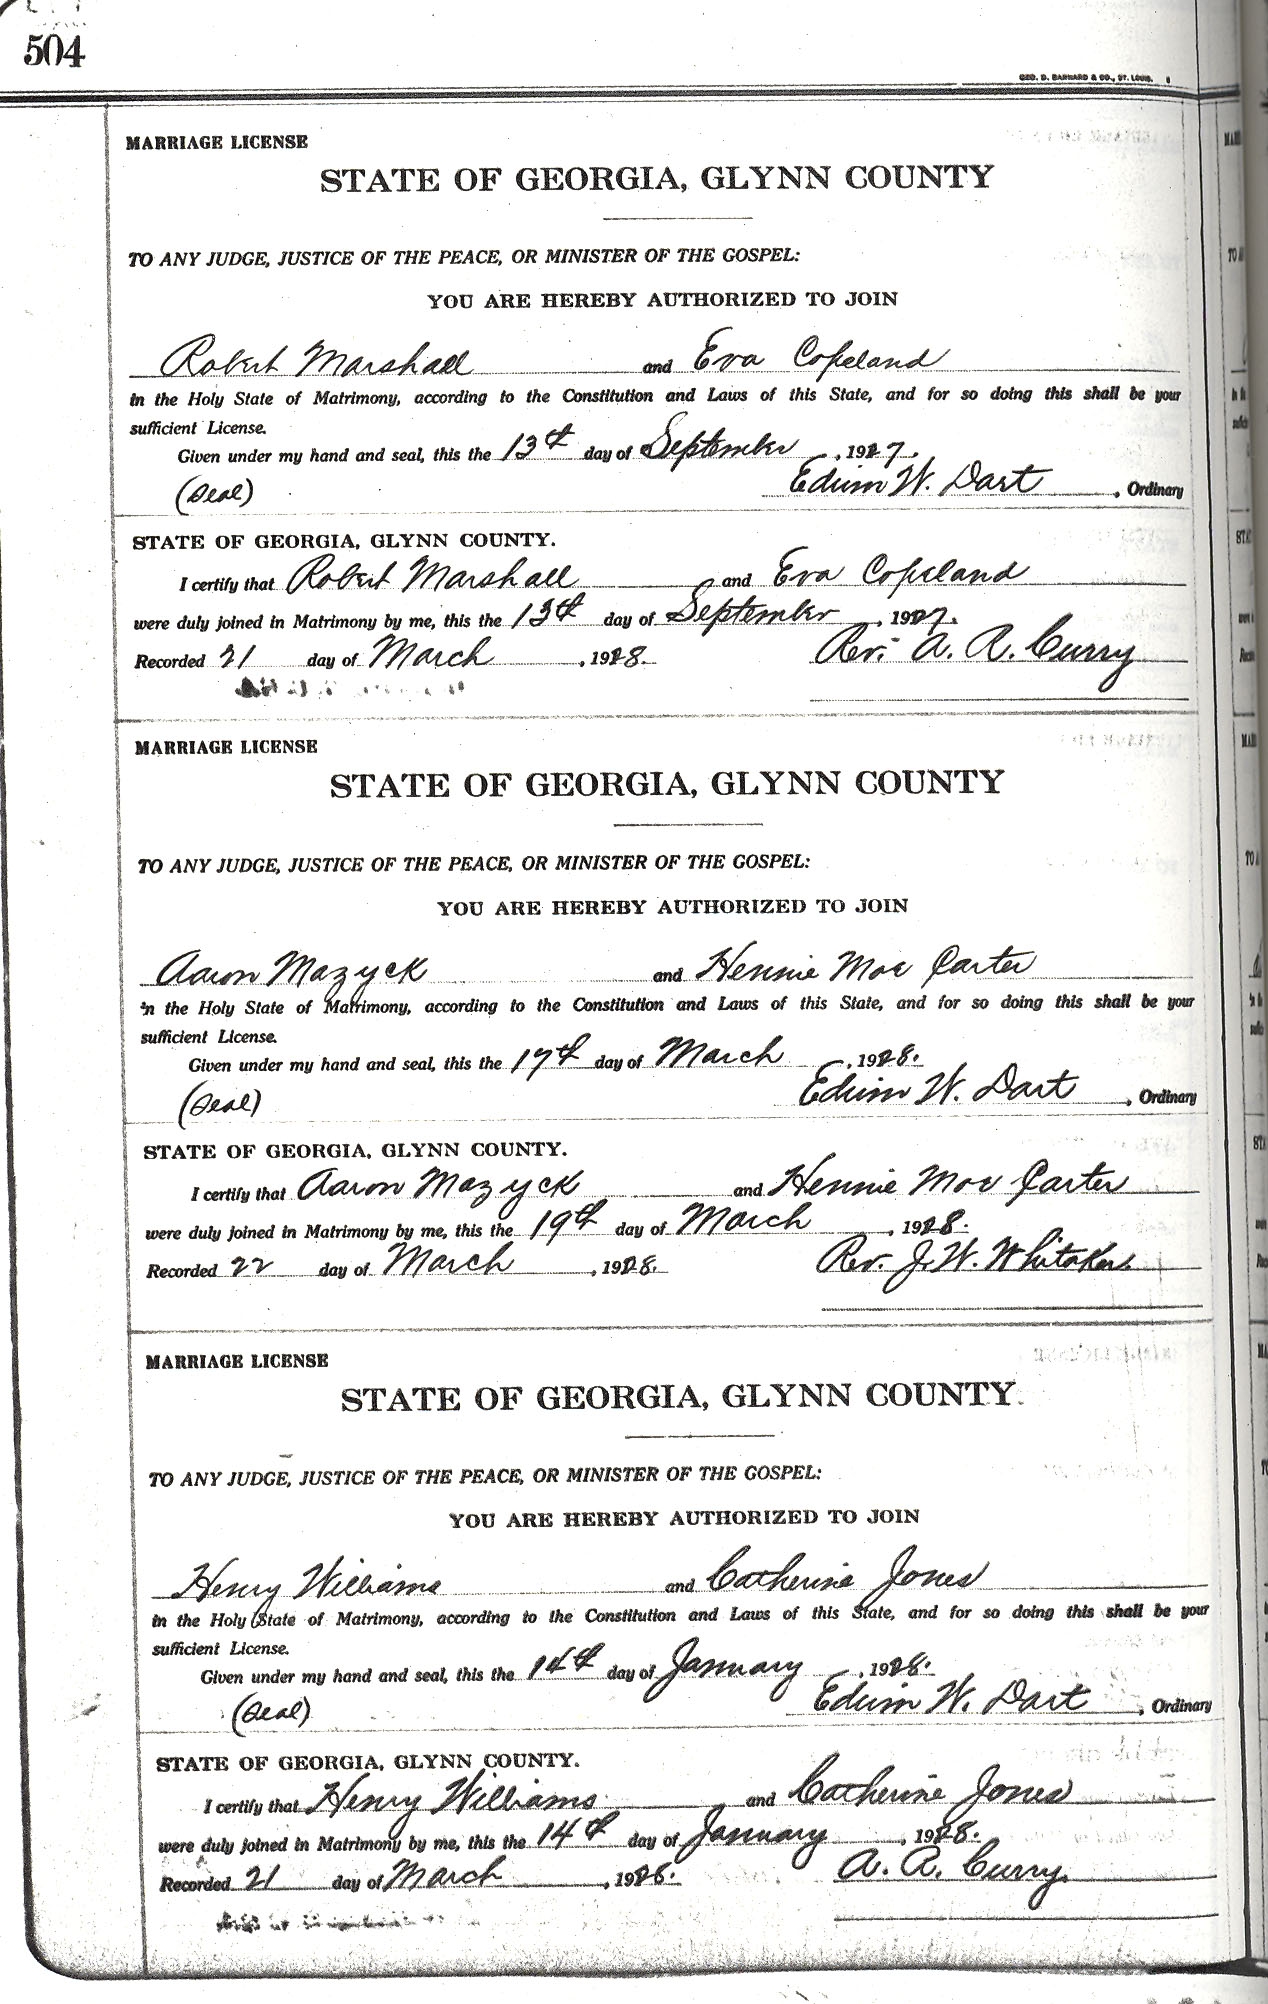 504
GEO. D. BARNARD & CO., ST. LOUIS.
MARRIAGE LICENSE
STATE OF GEORGIA, GLYNN COUNTY
TO ANY JUDGE, JUSTICE OF THE PEACE, OR MINISTER OF THE GOSPEL:
YOU ARE HEREBY AUTHORIZED TO JOIN
Robert Marshall and Eva Copeland
in the Holy State of Matrimony, according to the Constitution and Laws of this State, and for so doing this shall be your
sufficient License.
Given under my hand and seal, this the 13th day of September, 1927.
(Seal) Edwin W. Dart, Ordinary
STATE OF GEORGIA, GLYNN COUNTY.
I certify that Robert Marshall and Eva Copeland
were duly joined in Matrimony by me, this the 13th day of September, 1927.
Recorded 21 day of March, 1928. Rev. A. R. Curry
MARRIAGE LICENSE
STATE OF GEORGIA, GLYNN COUNTY
TO ANY JUDGE, JUSTICE OF THE PEACE, OR MINISTER OF THE GOSPEL:
YOU ARE HEREBY AUTHORIZED TO JOIN
Aaron Mazyck and Hennie Mae Carter
in the Holy State of Matrimony, according to the Constitution and Laws of this State, and for so doing this shall be your
sufficient License.
Given under my hand and seal, this the 17th day of March, 1928.
(Seal) Edwin W. Dart, Ordinary
STATE OF GEORGIA, GLYNN COUNTY.
I certify that Aaron Mazyck and Hennie Mae Carter
were duly joined in Matrimony by me, this the 19th day of March, 1928.
Recorded 22 day of March, 1928. Rev. J. W. Whitaker.
MARRIAGE LICENSE
STATE OF GEORGIA, GLYNN COUNTY.
TO ANY JUDGE, JUSTICE OF THE PEACE, OR MINISTER OF THE GOSPEL:
YOU ARE HEREBY AUTHORIZED TO JOIN
Henry Williams and Catherine Jones
in the Holy State of Matrimony, according to the Constitution and Laws of this State, and for so doing this shall be your
sufficient License.
Given under my hand and seal, this the 14th day of January, 1928.
(Seal) Edwin W. Dart, Ordinary
STATE OF GEORGIA, GLYNN COUNTY.
I certify that Henry Williams and Catherine Jones
were duly joined in Matrimony by me, this the 14th day of January, 1928.
Recorded 21 day of March, 1928. A. R. Curry.